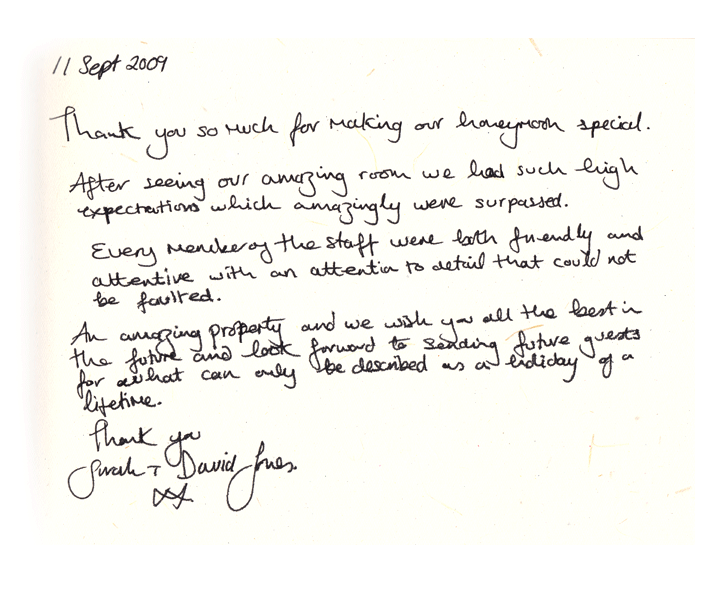 11 Sept 2009
Thank you so much for making our honeymoon special.
After seeing our amazing room we had such high
expectations which amazingly were surpassed.
Every member of the staff were both friendly and
attentive with an attention to detail that could not
be faulted.
An amazing property and we wish you all the best in
the future and look forward to sending future guests
for what can only be described as a holiday of a
lifetime.
Thank you
Sarah + David Jones.